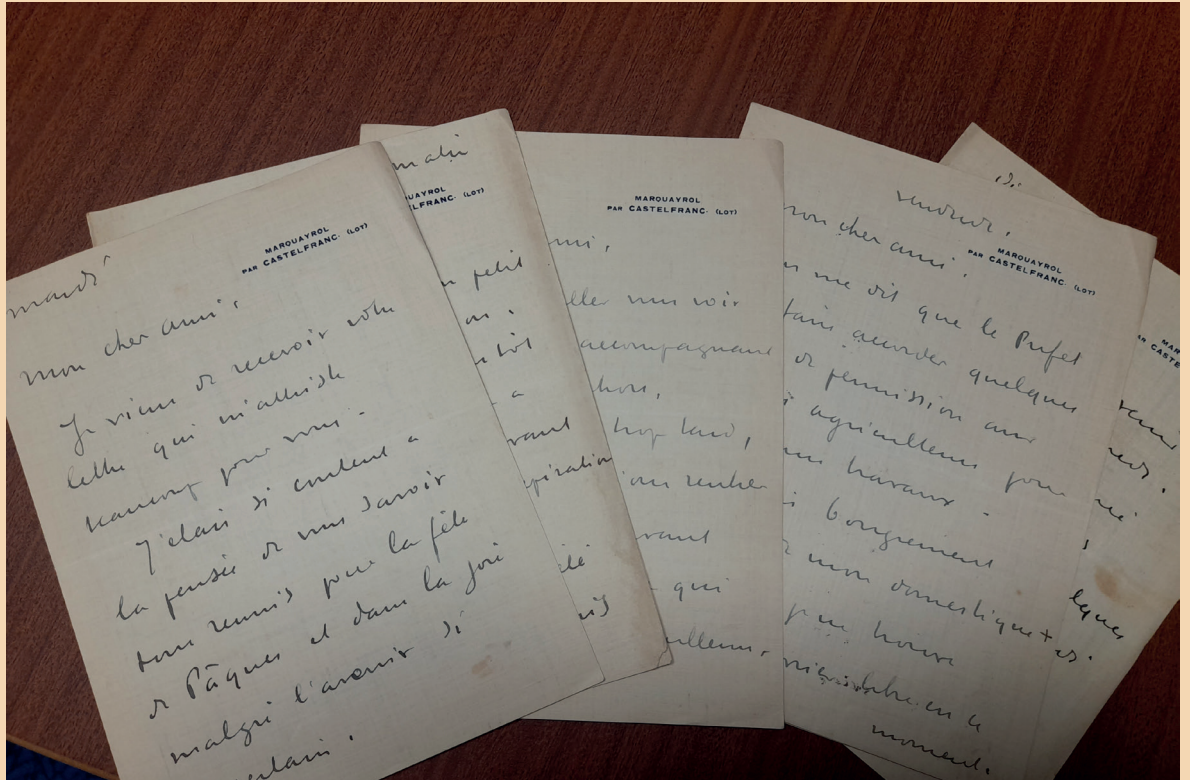 mardi
MAROUAYROL
PAR CASTELFRANC. (LOT)
mon cher ami,
Je viens de recevoir votre
lettre qui m'attriste
beaucoup pour vous.
J'étais si content à
la pensée de vous savoir
tous réunis pour la fête
de Pâques et dans la joie
malgré l'avenir si
matin
UAYROL
LFRANC. (LOT)
petit
a
vant
spiration
MAROUAYROL
PAR CASTELFRANC. (LOT)
mi,
ller vous voir
accompagnant
hors,
trop tard,
ous rentrer
avant
qui
vendredi,
MAROUAYROL
PAR CASTELFRANC. (LOT)
mon cher ami,
me dit que le Préfet
faire accorder quelques
de permission aux
agriculteurs pour
travaux.
bougrement
mon domestique +
je ne trouve
en ce
moment.
MAR
PAR CASTE
lques